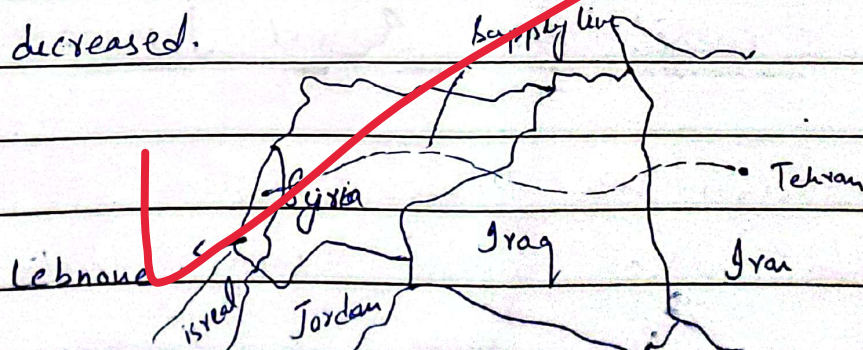 decreased.
Supply line
Tehran
Syria
Iraq
Iran
Lebnone
isreal
Jordan